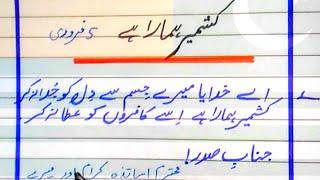 کشمیر ہمارا ہے 5 فروری
اے خدایا میرے جسم سے دل کو جدا نہ کر
کشمیر ہمارا ہے اسے کافروں کو عطا نہ کر
جناب صدر!
محترم اساتذہ کرام اور میرے